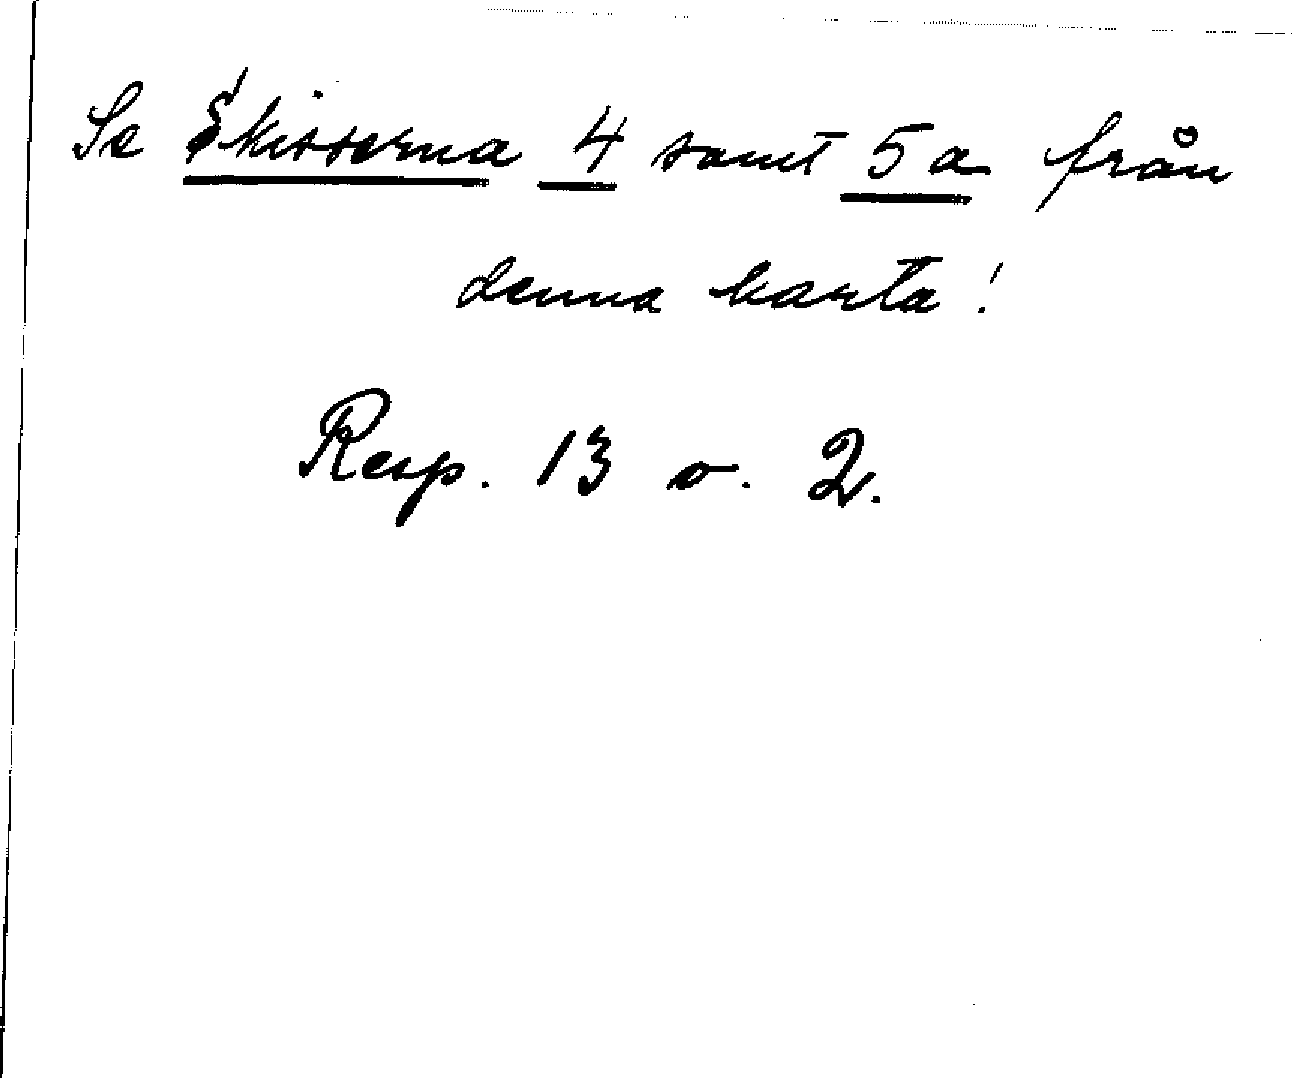 Se Skisserna 4 samt 5a från
denna karta!
Resp. 13 o. 2.